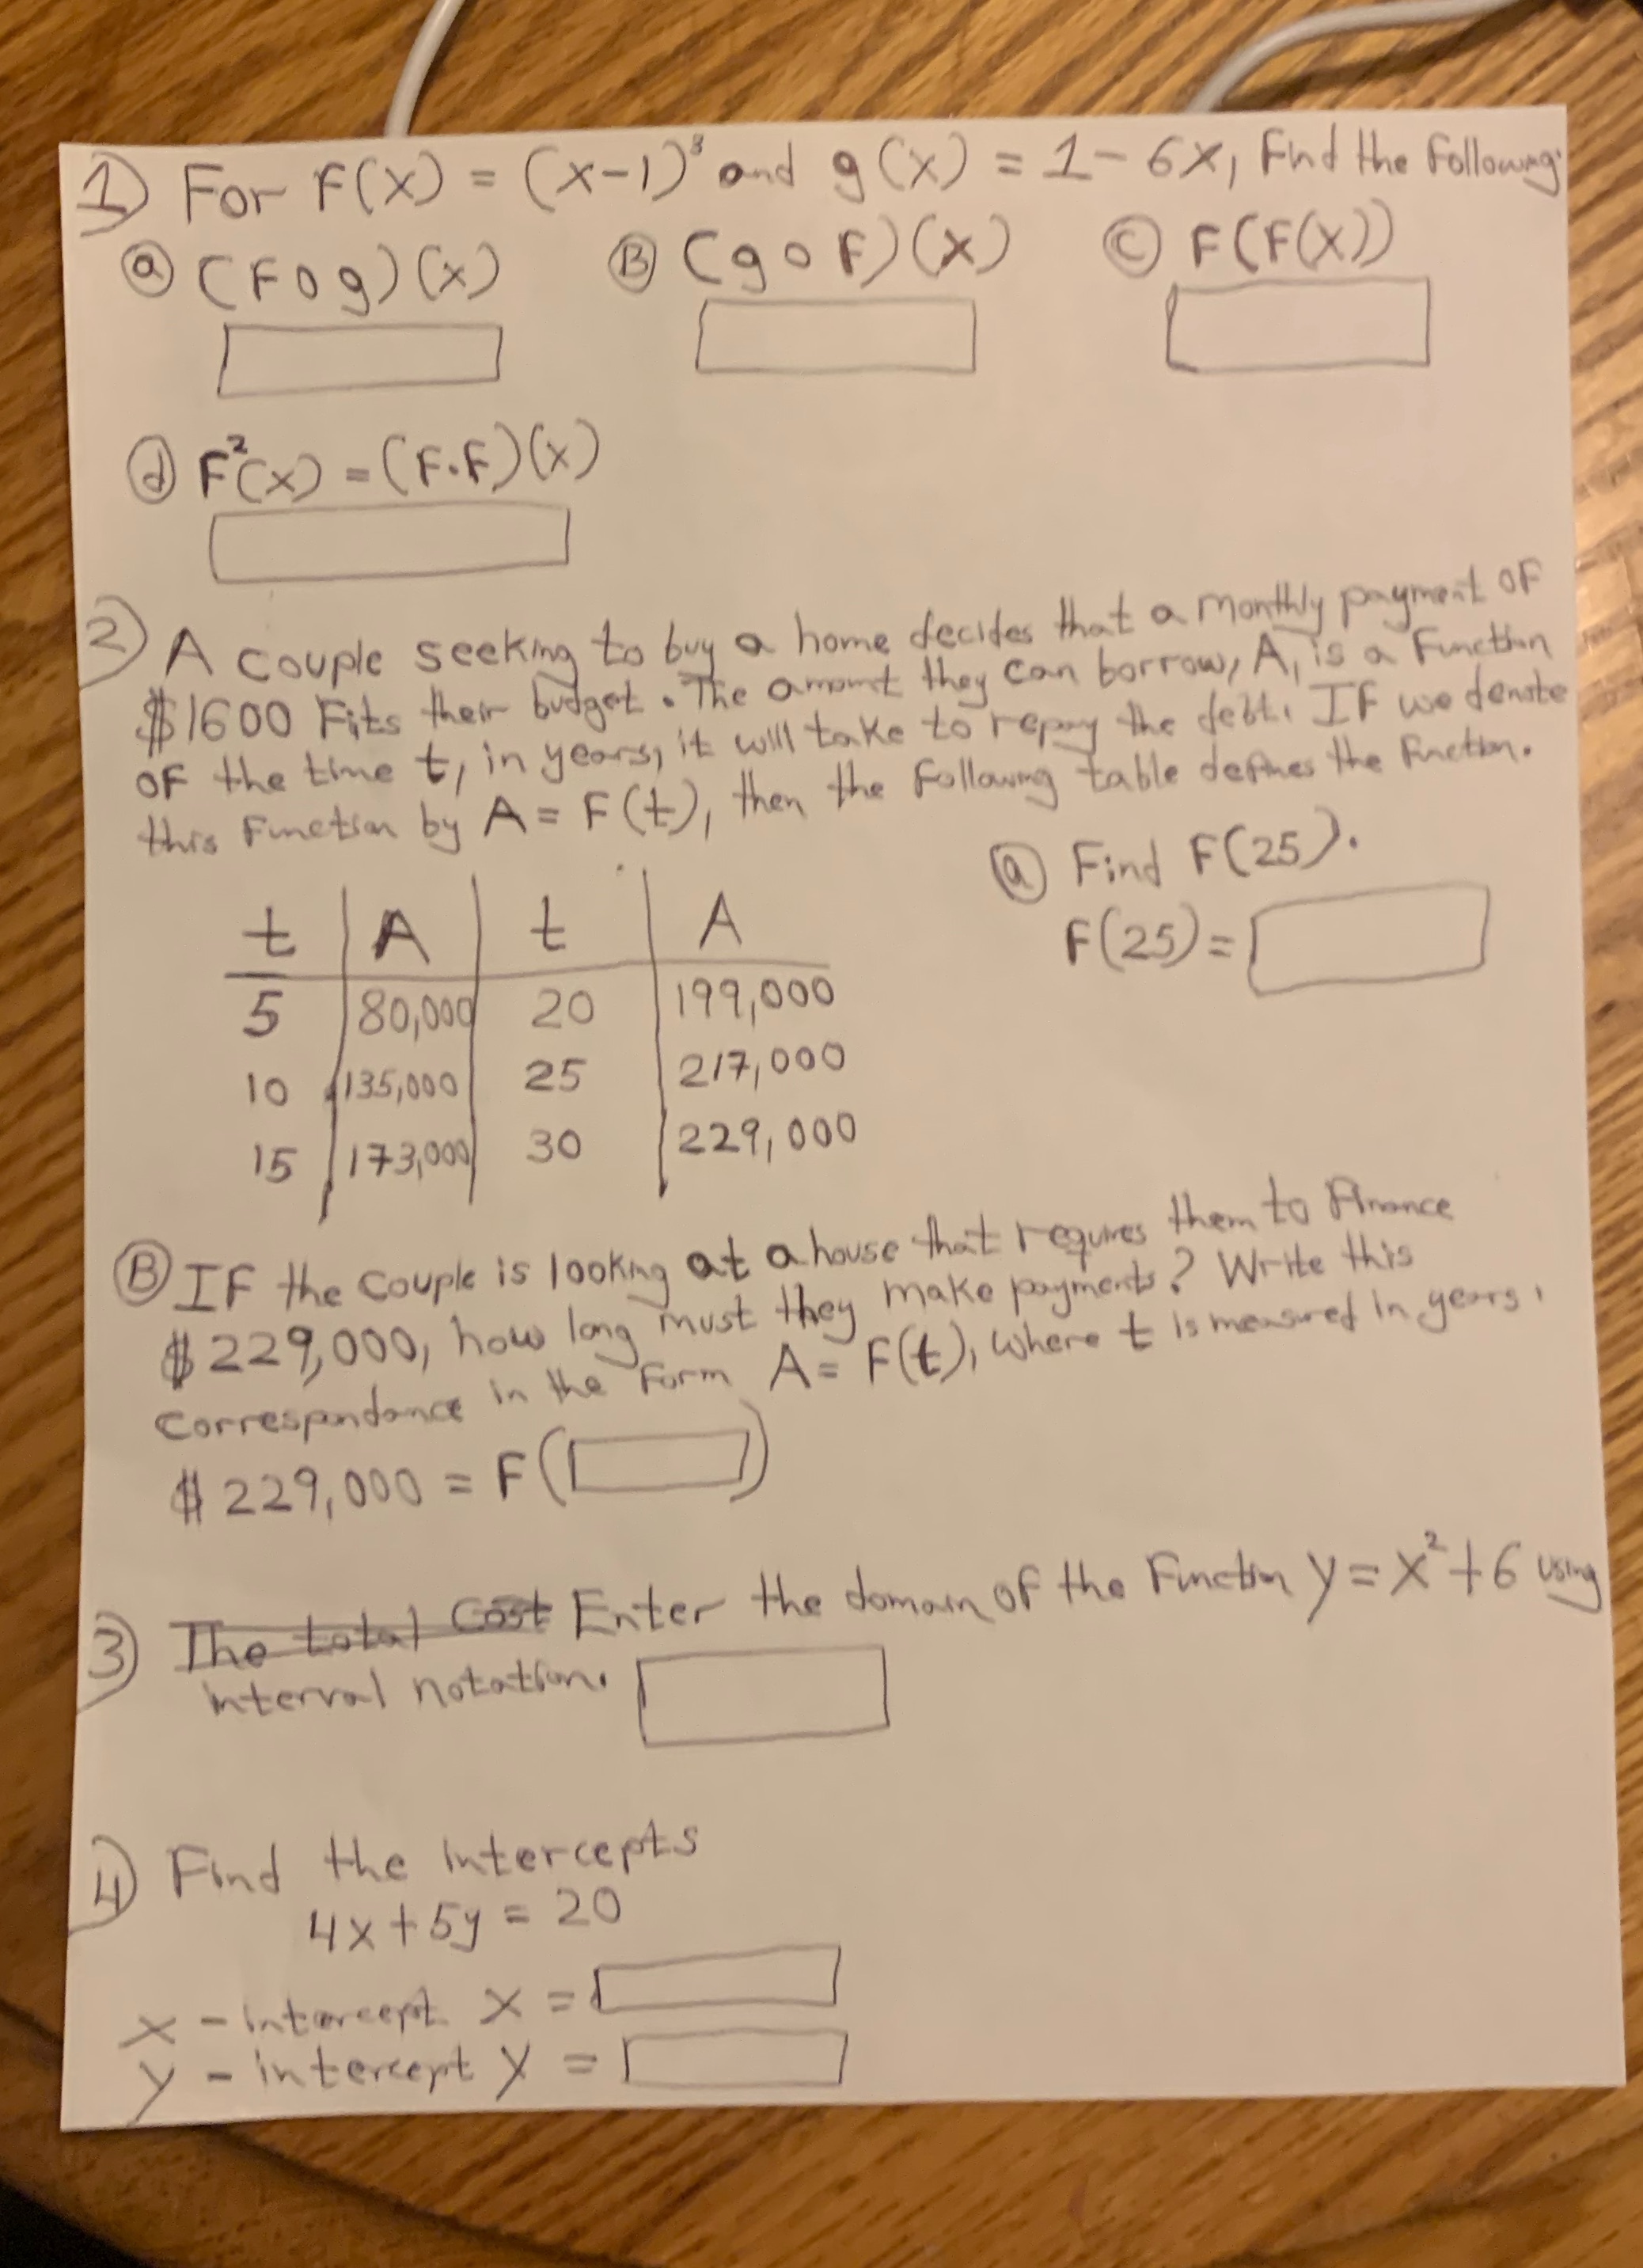 1) For F(x) = (x-1)³ and g(x) = 1 - 6x, find the following:
ⓐ (F o g)(x) Ⓑ (g o F)(x) Ⓒ F(F(x))
ⓓ F²(x) = (F·F)(x)
2) A couple seeking to buy a home decides that a monthly payment of
$1600 Fits their budget. The amount they can borrow, A, is a Function
OF the time t, in years, it will take to repay the debt. IF we denote
this Function by A = F(t), then the following table defines the function.
ⓐ Find F(25).
F(25) =
t | A | t | A
5 | 80,000 | 20 | 199,000
10 | 135,000 | 25 | 217,000
15 | 173,000 | 30 | 229,000
Ⓑ IF the couple is looking at a house that requires them to Finance
$229,000, how long must they make payments? Write this
correspondance in the Form A = F(t), where t is measured in years.
$229,000 = F( )
3) The total Cost Enter the domain of the Function y = x² + 6 using
interval notation.
4) Find the intercepts
4x + 5y = 20
x - intercept x =
y - intercept y =